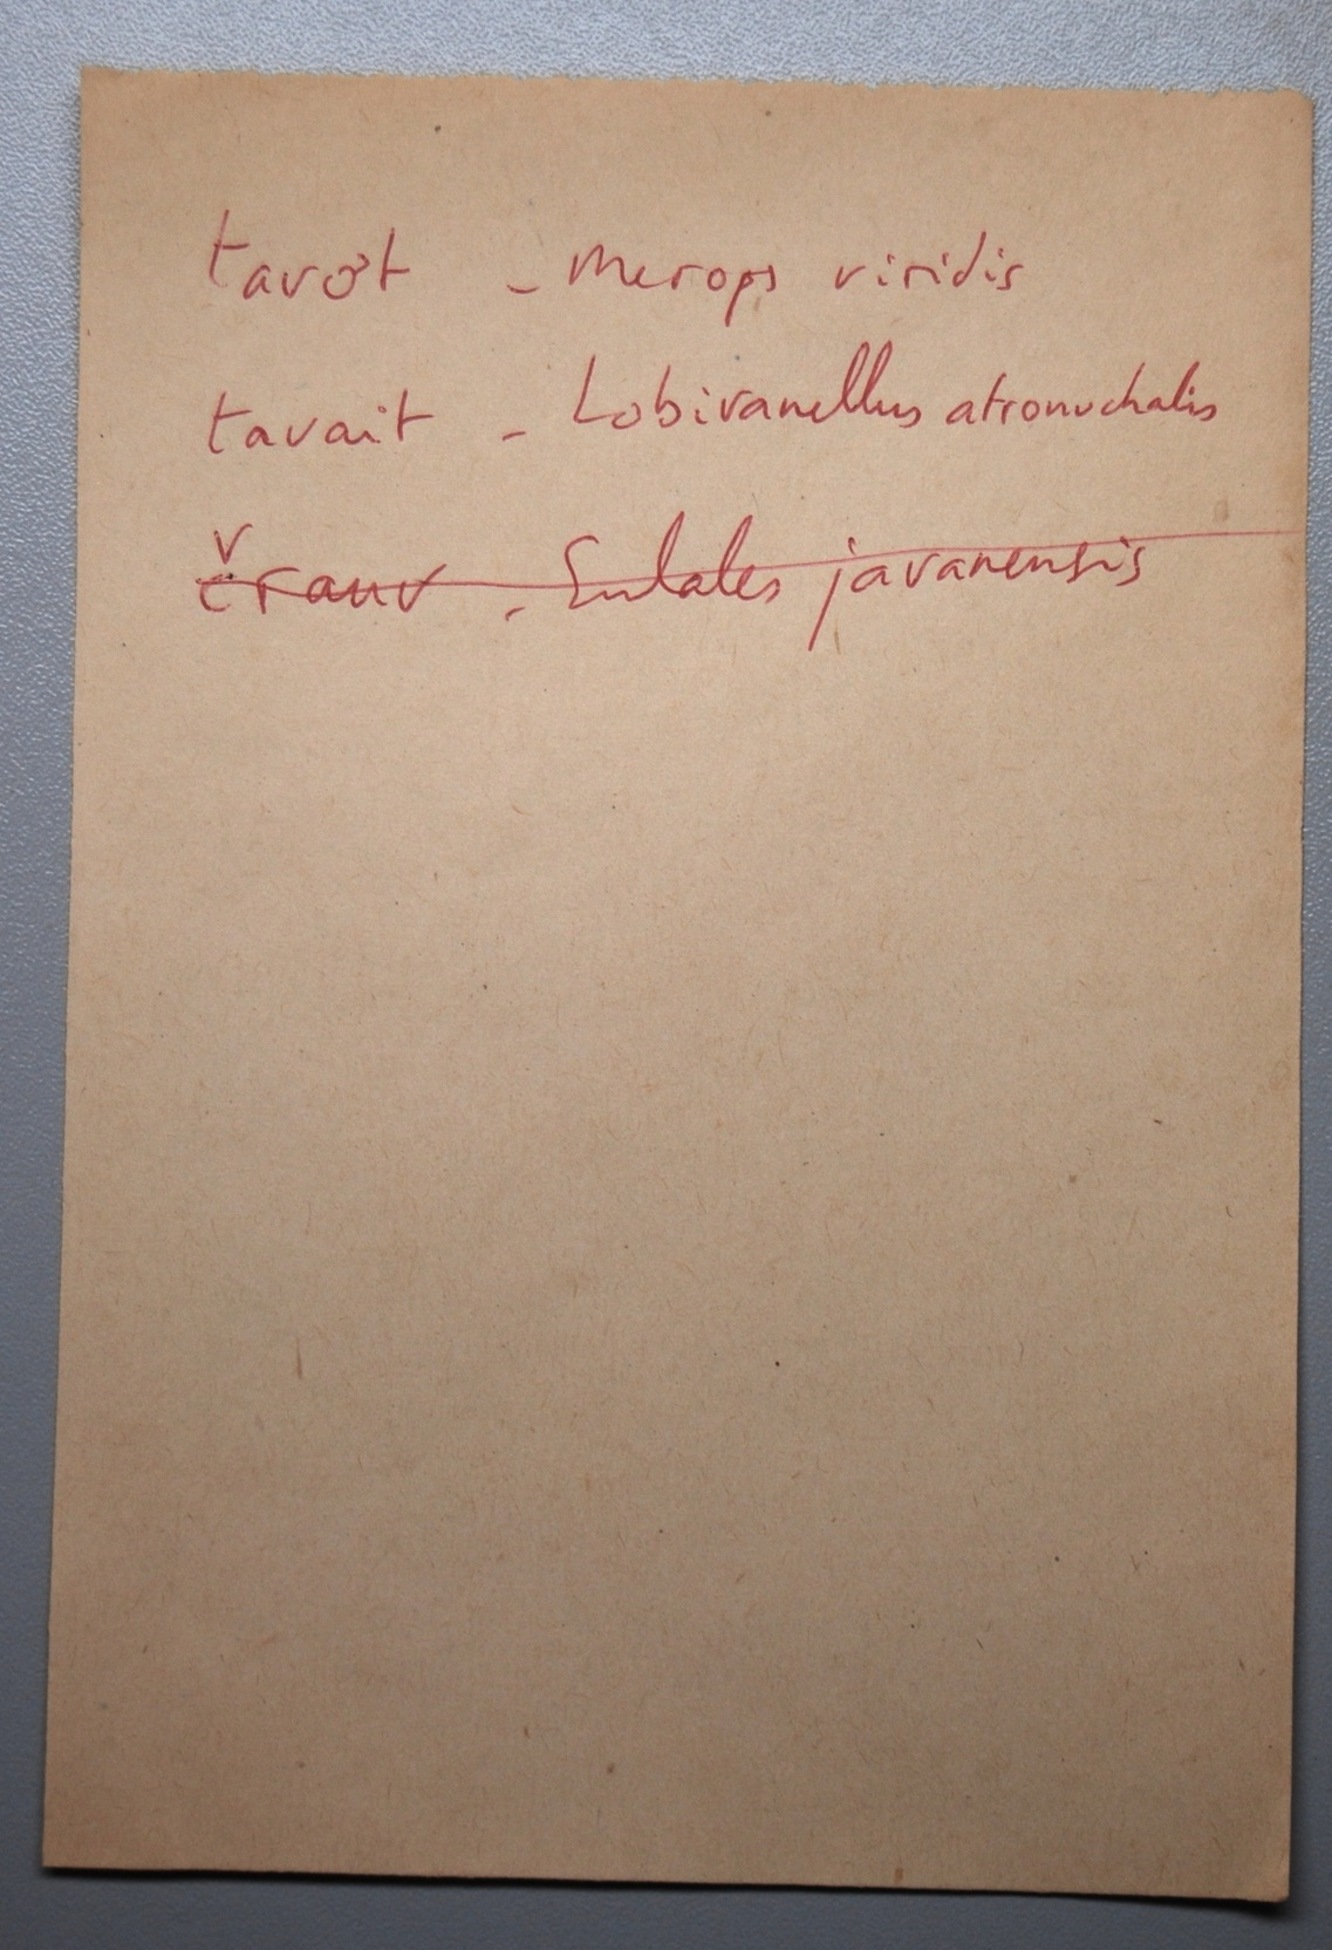 tavơt - Merops viridis
tavait - Lobivanellus atronuchalis
črauv - Eulales javanensis